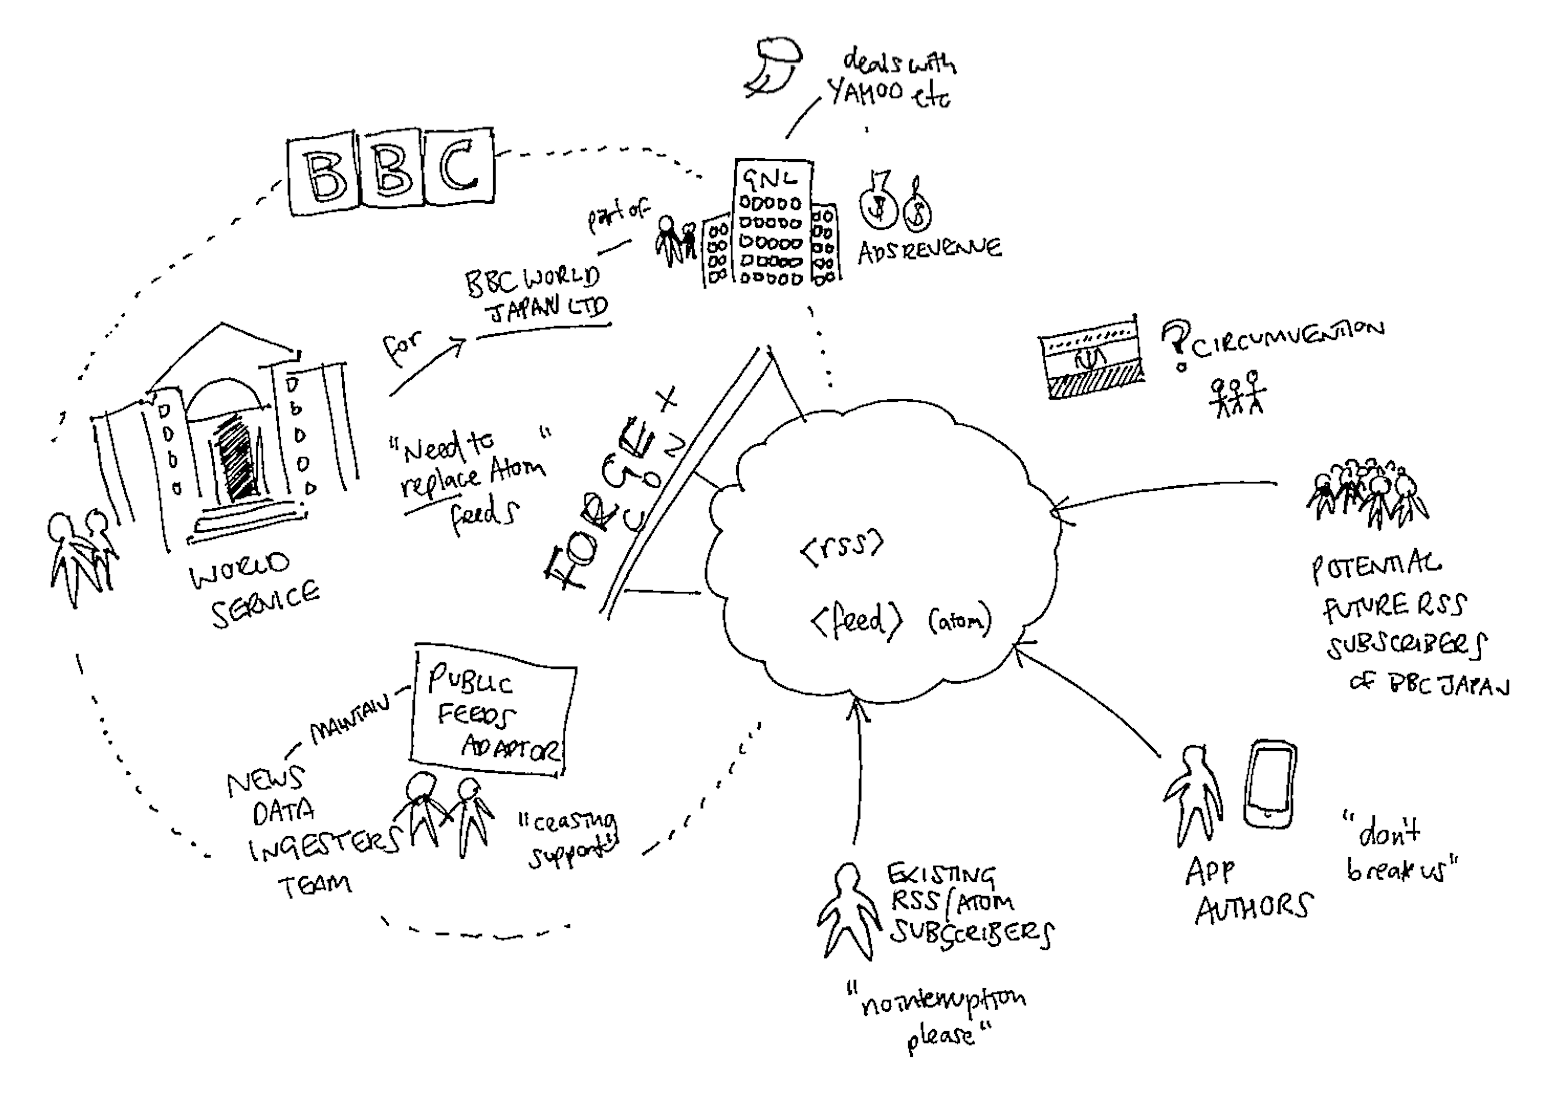 deals with
YAHOO etc
BBC
GNL
part of
ADS REVENUE
BBC WORLD
JAPAN LTD
for
? CIRCUMVENTION
"Need to"
replace Atom
feeds
WORLD
SERVICE
<rss>
<feed> (atom)
POTENTIAL
FUTURE RSS
SUBSCRIBERS
OF BBC JAPAN
PUBLIC
FEEDS
ADAPTOR
MAINTAIN
NEWS
DATA
INGESTERS
TEAM
"ceasing
support"
EXISTING
RSS/ATOM
SUBSCRIBERS
"no interruption
please"
APP
AUTHORS
"don't
break us"